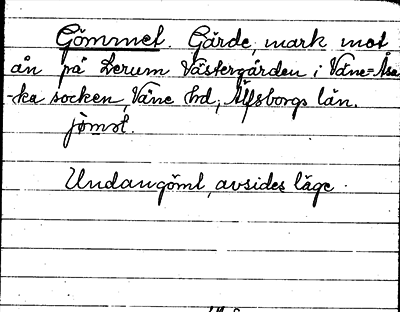 Gömmet. Gärde, mark mot
ån på Lerum Västergården i Väne=Åsa
-ka socken, Väne hd, Älfsborgs län.
jömət.
Undangömt, avsides läge.